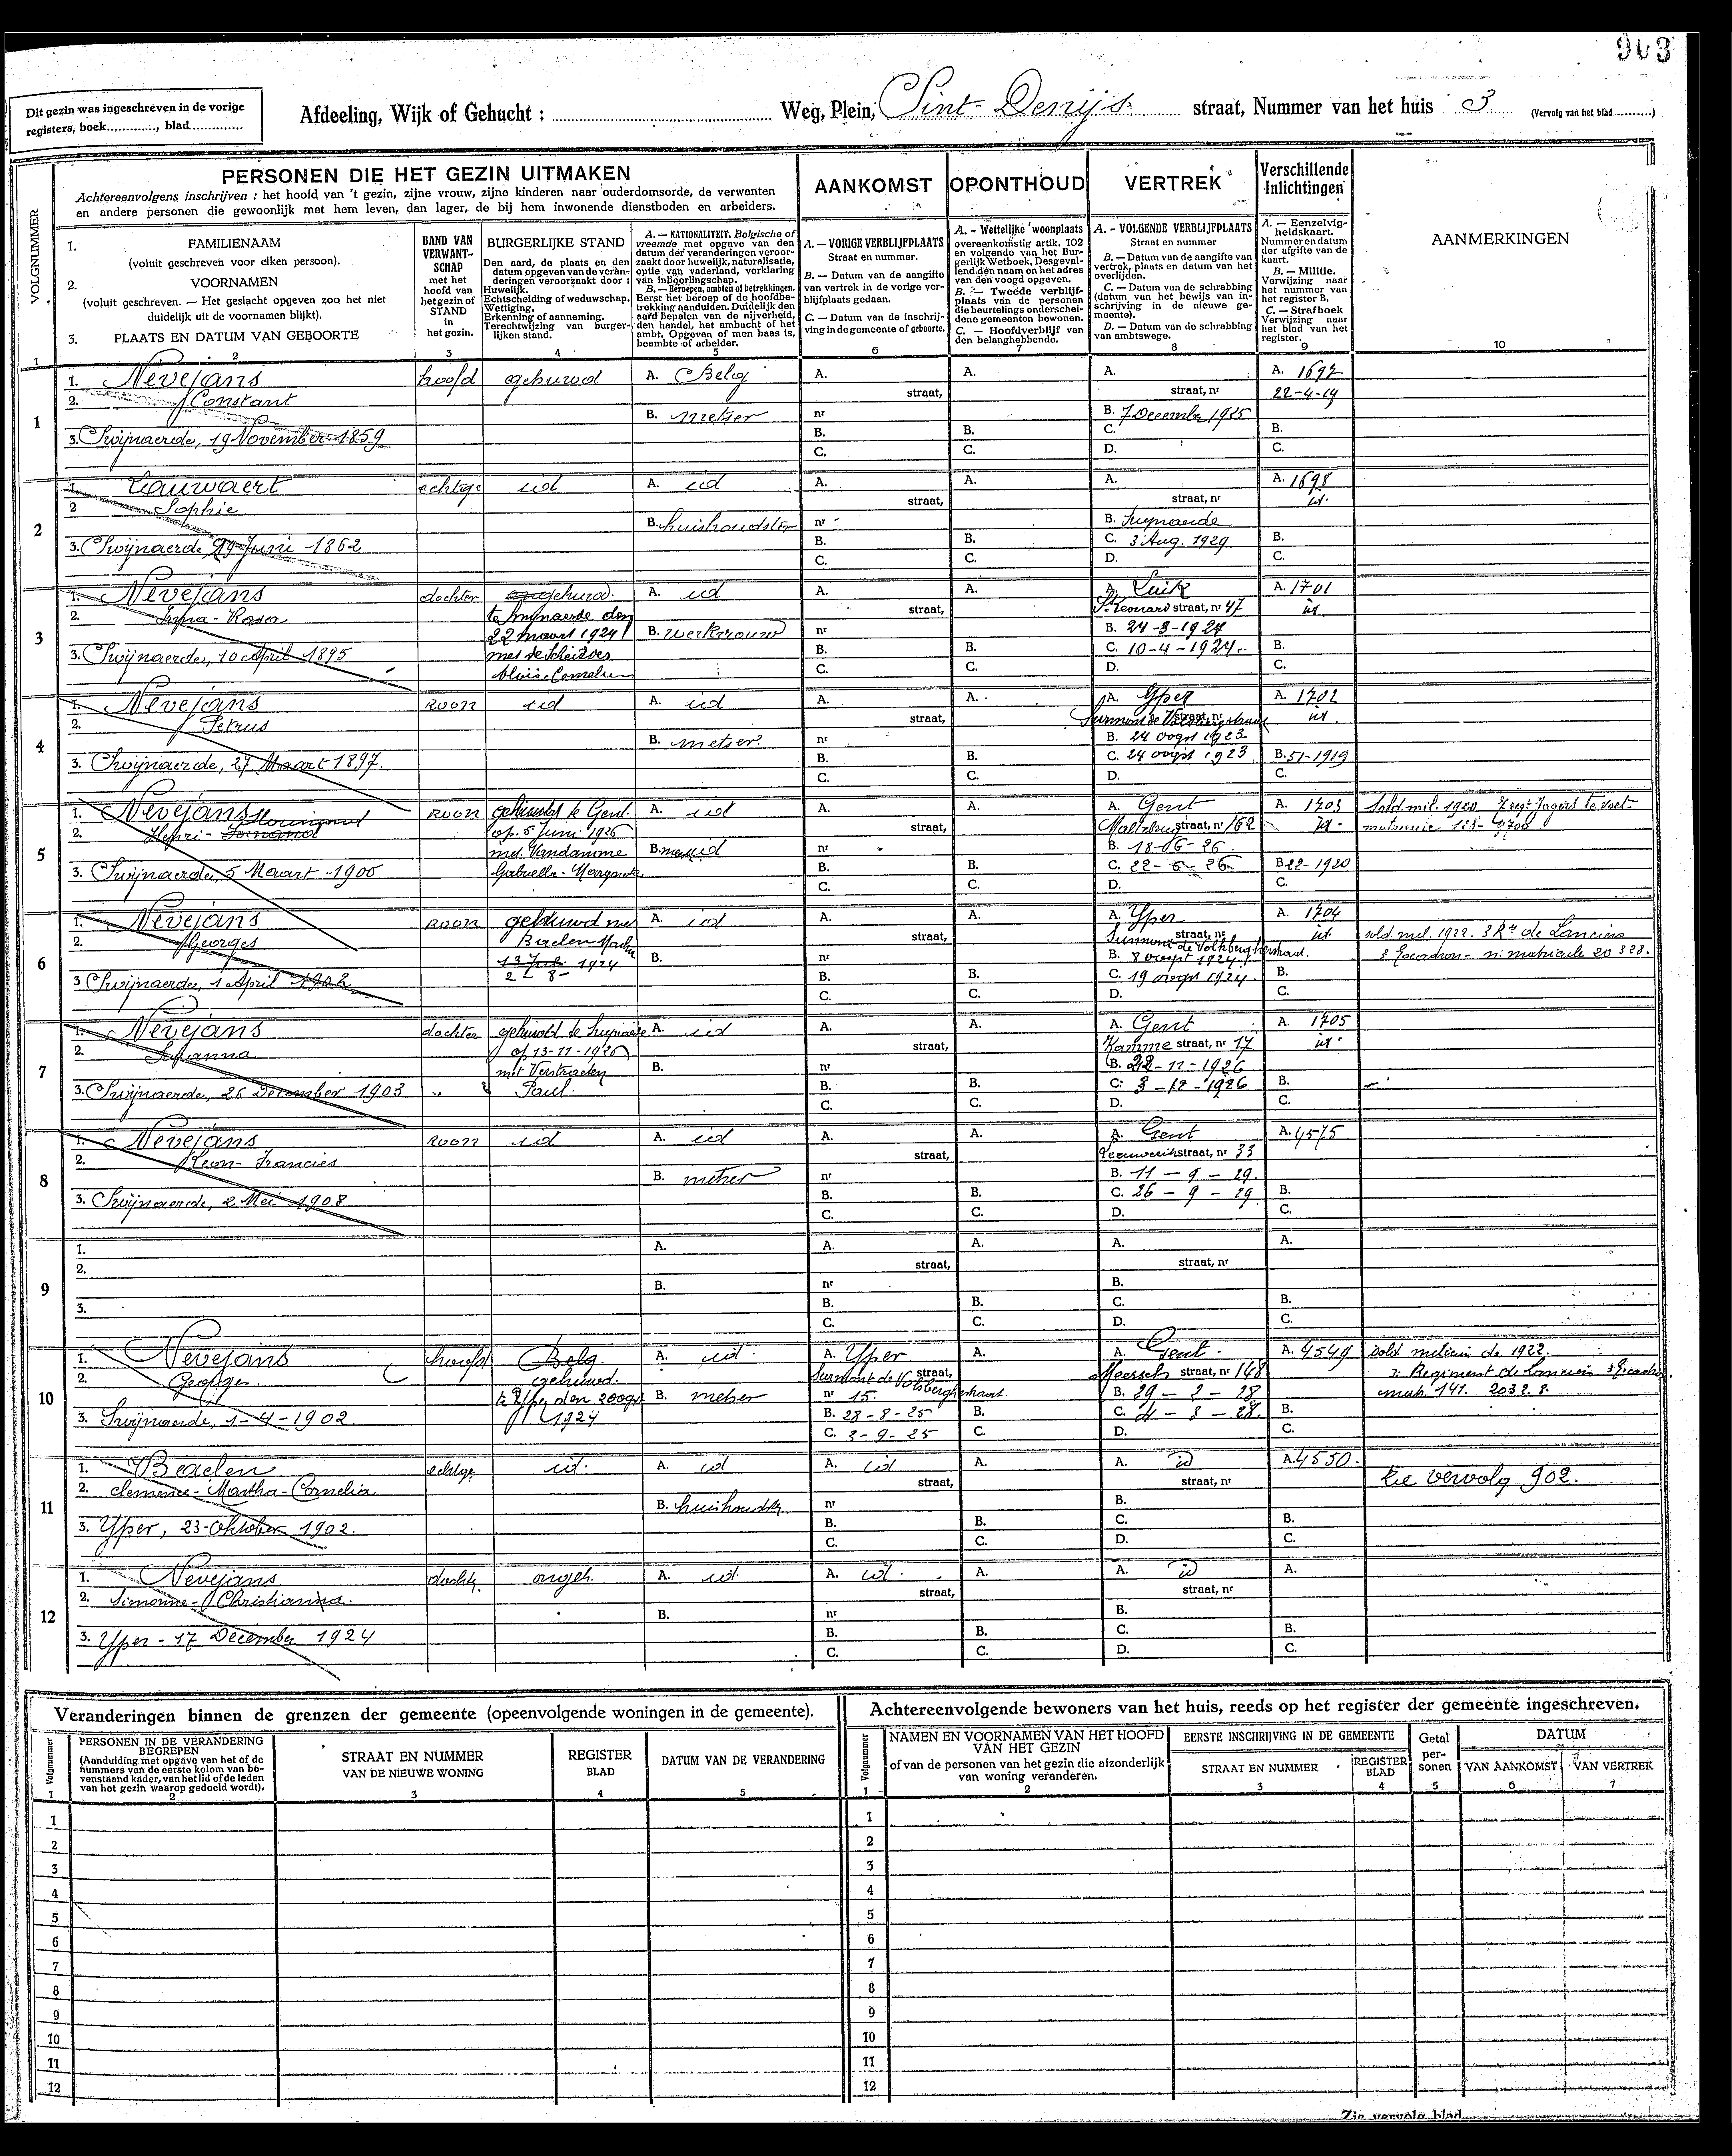 903
Dit gezin was ingeschreven in de vorige
registers, boek............, blad..............
Afdeeling, Wijk of Gehucht : Weg, Plein, Sint-Denijs straat, Nummer van het huis 3 (Vervolg van het blad ..........)
PERSONEN DIE HET GEZIN UITMAKEN
Achtereenvolgens inschrijven : het hoofd van 't gezin, zijne vrouw, zijne kinderen naar ouderdomsorde, de verwanten
en andere personen die gewoonlijk met hem leven, dan lager, de bij hem inwonende dienstboden en arbeiders.
AANKOMST
OPONTHOUD
VERTREK
Verschillende
Inlichtingen
AANMERKINGEN
VOLGNUMMER
1. FAMILIENAAM
(voluit geschreven voor elken persoon).
2. VOORNAMEN
(voluit geschreven. — Het geslacht opgeven zoo het niet
duidelijk uit de voornamen blijkt).
3. PLAATS EN DATUM VAN GEBOORTE
BAND VAN
VERWANT-
SCHAP
met het
hoofd van
het gezin of
STAND
in
het gezin.
BURGERLIJKE STAND
Den aard, de plaats en den
datum opgeven van de verän-
deringen veroorzaakt door :
Huwelijk.
Echtscheiding of weduwschap.
Wettiging.
Erkenning of aanneming.
Terechtwijzing van burger-
lijken stand.
A. — NATIONALITEIT. Belgische of
vreemde met opgave van den
datum der veranderingen veroor-
zaakt door huwelijk, naturalisatie,
optie van vaderland, verklaring
van inboorlingschap.
B. — Beroepen, ambten of betrekkingen.
Eerst het beroep of de hoofdbe-
trekking aanduiden. Duidelijk den
aard bepalen van de nijverheid,
den handel, het ambacht of het
ambt. Opgeven of men baas is,
beambte of arbeider.
A. — VORIGE VERBLIJFPLAATS
Straat en nummer.
B. — Datum van de aangifte
van vertrek in de vorige ver-
blijfplaats gedaan.
C. — Datum van de inschrij-
ving in de gemeente of geboorte.
A. - Wettelijke woonplaats
overeenkomstig artik. 102
en volgende van het Bur-
gerlijk Wetboek. Desgeval-
lend den naam en het adres
van den voogd opgeven.
B. — Tweede verblijf-
plaats van de personen
die beurtelings onderschei-
dene gemeenten bewonen.
C. — Hoofdverblijf van
den belanghebbende.
A. - VOLGENDE VERBLIJFPLAATS
Straat en nummer
B. — Datum van de aangifte van
vertrek, plaats en datum van het
overlijden.
C. — Datum van de schrabbing
(datum van het bewijs van in-
schrijving in de nieuwe ge-
meente).
D. — Datum van de schrabbing
van ambtswege.
A. — Eenzelvig-
heidskaart.
Nummer en datum
der afgifte van de
kaart.
B. — Militie.
Verwijzing naar
het nummer van
het register B.
C. — Strafboek
Verwijzing naar
het blad van het
register.
1 2 3 4 5 6 7 8 9 10
1
1. Nevejans hoofd gehuwd A. Belg A. A. A. A. 1697
2. Constant straat, straat, nr 22-4-19
B. metser nr B. 7 December 1925
3. Swijnaerde, 19 November 1859 B. B. C. B.
C. C. D. C.
2
1. Lauwaert echtge id A. id A. A. A. A. 1698
2 Sophie straat, straat, nr id.
B. huishoudster nr B. Swynaerde
3. Swijnaerde, 29 Juni 1862 B. B. C. 3 Aug. 1929 B.
C. C. D. C.
3
1. Nevejans dochter gehuwd. A. id A. A. A. Luik A. 1701
2. Irma-Rosa te Swynaerde den straat, St Leonard straat, nr 47 id
22 maart 1924 B. werkvrouw nr B. 24-3-1924
3. Swijnaerde, 10 April 1895 met de B. B. C. 10-4-1924. B.
C. C. D. C.
4
1. Nevejans zoon id A. id A. A. A. Yper A. 1702
2. Petrus straat, straat, nr id.
B. metser. nr B. 24 oogst 1923
3. Swijnaerde, 27 Maart 1897. B. B. C. 24 oogst 1923 B. 51-1919
C. C. D. C.
5
1. Nevejans zoon gehuwd te Gent A. id A. A. A. Gent A. 1703 Sold. mil. 1920
2. Henri- op. 5 Juni 1926 straat, straat, nr 162 id.
met. Vandamme B. id nr B. 18-06-26.
3. Swijnaerde, 5 Maart 1900 Gabriella- B. B. C. 22-6-26 B. 22-1920
C. C. D. C.
6
1. Nevejans zoon gehuwd met A. id A. A. A. Yper A. 1704 sold. mil. 1922. 3 Rt de Lanciers
2. Georges Baelen Martha straat, Surmont de Volsberghe straat. id. 3 Escadron - n: matricule 20 328.
13 Juli 1924 B. nr B. 8 oogst 1924
3 Swijnaerde, 1 April 1902 2 - 8 - B. B. C. 19 oogst 1924. B.
C. C. D. C.
7
1. Nevejans dochter gehuwd te Swynaerde A. id A. A. A. Gent A. 1705
2. Susanna op 13-11-1926 straat, Kamme straat, nr 17. id.
met Verstraeten B. nr B. 22-11-1926
3. Swijnaerde, 26 December 1903 Paul. B. B. C: 3-12-1926 B.
C. C. D. C.
8
1. Nevejans zoon id A. id A. A. A. Gent A. 4575
2. Leon-Francies straat, Leeuwerik straat, nr 33
B. metser nr B. 11 - 9 - 29.
3. Swijnaerde, 2 Mei 1908 B. B. C. 26 - 9 - 29 B.
C. C. D. C.
9
1. A. A. A. A. A.
2. straat, straat, nr
B. nr B.
3. B. B. C. B.
C. C. D. C.
10
1. Nevejans hoofd Belg. A. id. A. Yper A. A. Gent. A. 4549 Sold milicien de 1922.
2. Georges. gehuwd. Surmont de Volsberghe straat. Meersch straat, nr 148 2: Regiment de Lanciers 3 Escadron.
te Yper den 2 oogst B. metser nr 15. B. 29 - 2 - 28 matr. 141. 2032.8.
3. Swijnaerde, 1-4-1902. 1924 B. 28-8-25 B. C. 4 - 3 - 28. B.
C. 3-9-25 C. D. C.
11
1. Baelen echtge. id. A. id A. id A. A. id A. 4550.
2. Clemence-Martha-Cornelia straat, straat, nr zie vervolg 902.
B. huishoudster nr B.
3. Yper, 23-Oktober 1902. B. B. C. B.
C. C. D. C.
12
1. Nevejans docht. ongeh. A. id. A. id. A. A. id A.
2. Simonne-Christianna. straat, straat, nr
B. nr B.
3. Yper - 17 December 1924 B. B. C. B.
C. C. D. C.
Veranderingen binnen de grenzen der gemeente (opeenvolgende woningen in de gemeente).
Volgnummer
PERSONEN IN DE VERANDERING
BEGREPEN
(Aanduiding met opgave van het of de
nummers van de eerste kolom van bo-
venstaand kader, van het lid of de leden
van het gezin waarop gedoeld wordt).
STRAAT EN NUMMER
VAN DE NIEUWE WONING
REGISTER
BLAD
DATUM VAN DE VERANDERING
1 2 3 4 5
1
2
3
4
5
6
7
8
9
10
11
12
Achtereenvolgende bewoners van het huis, reeds op het register der gemeente ingeschreven.
Volgnummer
NAMEN EN VOORNAMEN VAN HET HOOFD
VAN HET GEZIN
of van de personen van het gezin die afzonderlijk
van woning veranderen.
EERSTE INSCHRIJVING IN DE GEMEENTE
STRAAT EN NUMMER
REGISTER
BLAD
Getal
per-
sonen
DATUM
VAN AANKOMST
VAN VERTREK
1 2 3 4 5 6 7
1
2
3
4
5
6
7
8
9
10
11
12
Zie vervolg blad